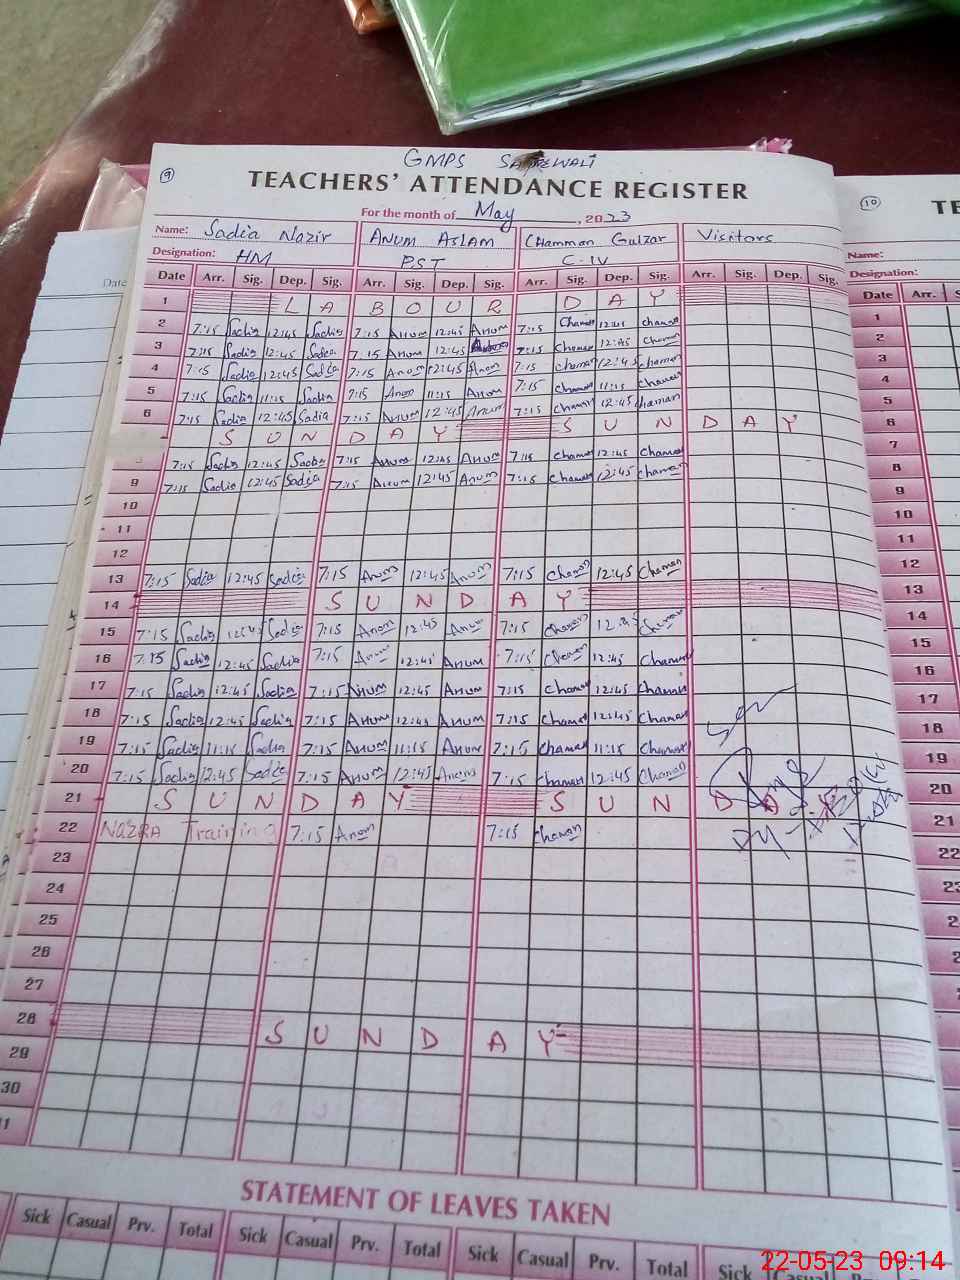 GMPS
9
TEACHERS' ATTENDANCE REGISTER
For the month of May, 2023
Name: Sadia Nazir ANUM ASLAM CHamman Gulzar Visitors
Designation: HM PST C-IV
Date Arr. Sig. Dep. Sig. Arr. Sig. Dep. Sig. Arr. Sig. Dep. Sig. Arr. Sig. Dep. Sig.
1 LABOUR DAY
2 7:15 Sadia 12:45 Sadia 7:15 Anum 12:45 Anum 7:15 Chaman 12:45 Chaman
3 7:15 Sadia 12:45 Sadia 7:15 Anum 12:45 7:15 Chaman 12:45 Chaman
4 7:15 Sadia 12:45 Sadia 7:15 Anum 12:45 Anum 7:15 Chaman 12:45 Chaman
5 7:15 Sadia 11:15 Sadia 7:15 Anum 11:15 Anum 7:15 Chaman 11:15 Chaman
6 7:15 Sadia 12:45 Sadia 7:15 Anum 12:45 Anum 7:15 Chaman 12:45 Chaman
SUNDAY SUNDAY
7:15 Sadia 12:45 Sadia 7:15 Anum 12:45 Anum 7:15 Chaman 12:45 Chaman
9 7:15 Sadia 12:45 Sadia 7:15 Anum 12:45 Anum 7:15 Chaman 12:45 Chaman
10
11
12
13 7:15 Sadia 12:45 Sadia 7:15 Anum 12:45 Anum 7:15 Chaman 12:45 Chaman
14 SUNDAY
15 7:15 Sadia 12:45 Sadia 7:15 Anum 12:45 Anum 7:15 Chaman 12:45 Chaman
16 7:15 Sadia 12:45 Sadia 7:15 Anum 12:45 Anum 7:15 Chaman 12:45 Chaman
17 7:15 Sadia 12:45 Sadia 7:15 Anum 12:45 Anum 7:15 Chaman 12:45 Chaman
18 7:15 Sadia 12:45 Sadia 7:15 Anum 12:45 Anum 7:15 Chaman 12:45 Chaman
19 7:15 Sadia 11:15 Sadia 7:15 Anum 11:15 Anum 7:15 Chaman 11:15 Chaman
20 7:15 Sadia 12:45 Sadia 7:15 Anum 12:45 Anum 7:15 Chaman 12:45 Chaman
21 SUNDAY SUNDAY
22 NAZRA Training 7:15 Anum 7:15 Chaman
23
24
25
26
27
28 SUNDAY
29
30
STATEMENT OF LEAVES TAKEN
Sick Casual Prv. Total Sick Casual Prv. Total Sick Casual Prv. Total Sick Casual
10
Name:
Designation:
Date Arr.
1
2
3
4
5
6
7
8
9
10
11
12
13
14
15
16
17
18
19
20
21
22
Date
22-05-23 09:14